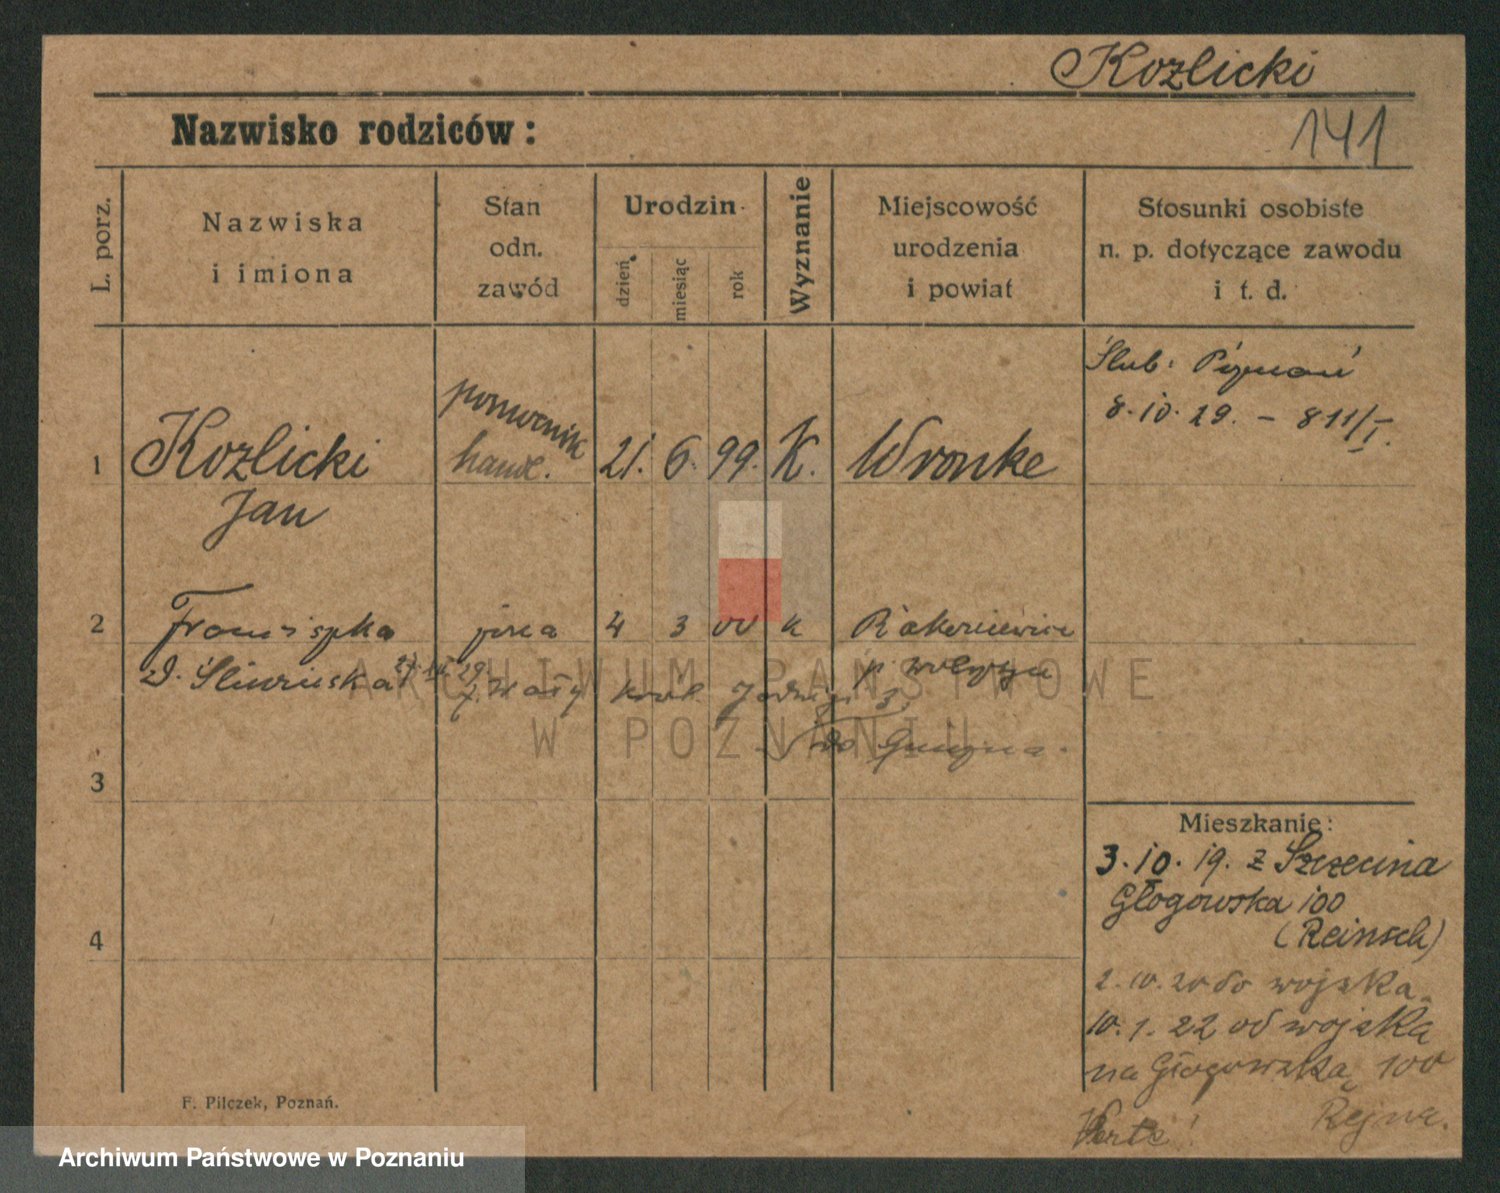 Kozlicki
Nazwisko rodziców:
141
L. porz.
Nazwiska
i imiona
Stan
odn.
zawód
Urodzin
dzień
miesiąc
rok
Wyznanie
Miejscowość
urodzenia
i powiat
Stosunki osobiste
n. p. dotyczące zawodu
i t. d.
Ślub: Poznań
8.10.29. – 811/I.
1
Kozlicki
Jan
pomocnik
handl.
21. 6. 99. K. Wronke
2
Franciszka
4 3 00 k Rakoniewice
p. Wolsztyn
król. Jadwigi 3
do
ARCHIWUM PAŃSTWOWE
W POZNANIU
3
Mieszkanie:
3.10.19. z Szczecina
Głogowska 100
(Reinsch)
4
2.10.20 do wojska
10.1.22 od wojska
na Głogowską 100
Verte!
F. Pilczek, Poznań.
Archiwum Państwowe w Poznaniu